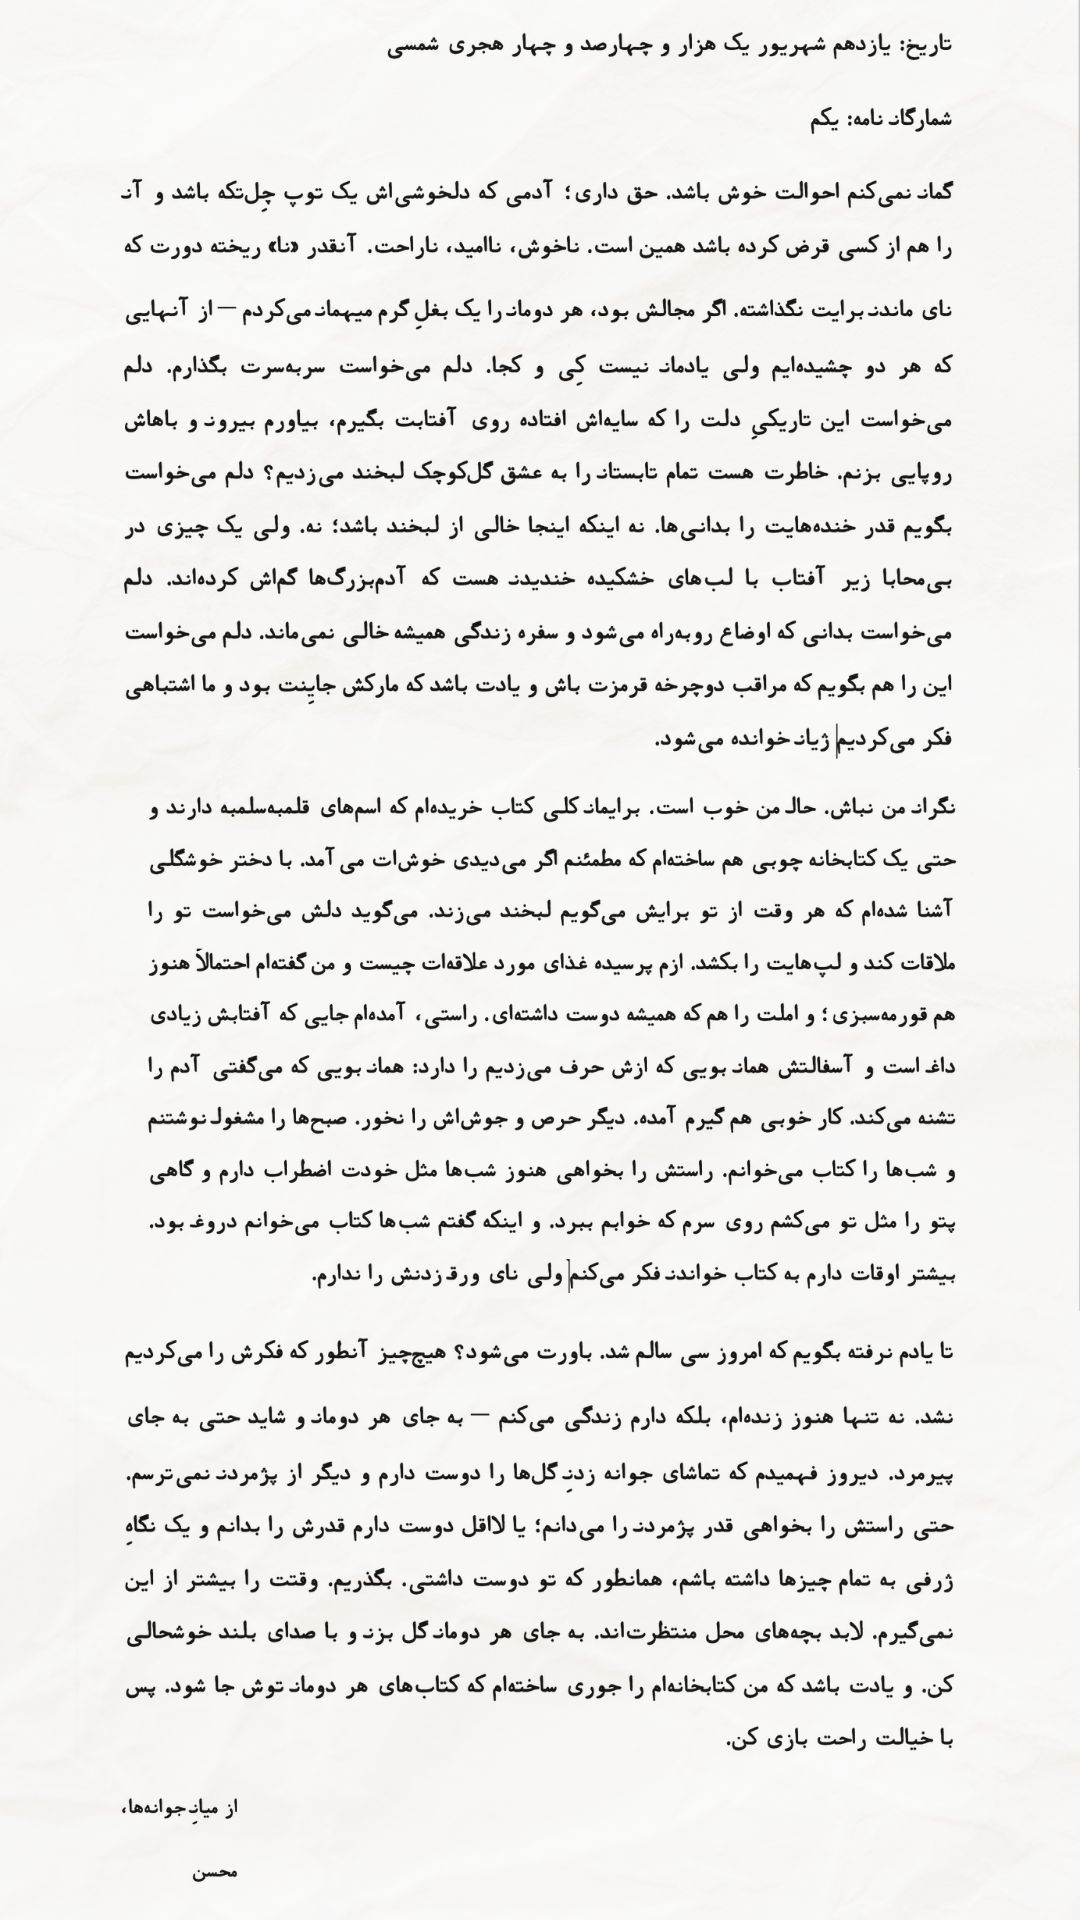 تاریخ: یازدهم شهریور یک هزار و چهارصد و چهار هجری شمسی
شمارگان نامه: یکم
گمان نمی‌کنم احوالت خوش باشد. حق داری؛ آدمی که دلخوشی‌اش یک توپ چِل‌تکه باشد و آن
را هم از کسی قرض کرده باشد همین است. ناخوش، ناامید، ناراحت. آنقدر «نا» ریخته دورت که
نای ماندن برایت نگذاشته. اگر مجالش بود، هر دومان را یک بغلِ گرم میهمان می‌کردم — از آنهایی
که هر دو چشیده‌ایم ولی یادمان نیست کِی و کجا. دلم می‌خواست سربه‌سرت بگذارم. دلم
می‌خواست این تاریکیِ دلت را که سایه‌اش افتاده روی آفتابت بگیرم، بیاورم بیرون و باهاش
روپایی بزنم. خاطرت هست تمام تابستان را به عشق گل‌کوچک لبخند می‌زدیم؟ دلم می‌خواست
بگویم قدر خنده‌هایت را بدانی‌ها. نه اینکه اینجا خالی از لبخند باشد؛ نه. ولی یک چیزی در
بی‌محابا زیر آفتاب با لب‌های خشکیده خندیدن هست که آدم‌بزرگ‌ها گم‌اش کرده‌اند. دلم
می‌خواست بدانی که اوضاع روبه‌راه می‌شود و سفره زندگی همیشه خالی نمی‌ماند. دلم می‌خواست
این را هم بگویم که مراقب دوچرخه قرمزت باش و یادت باشد که مارکش جایِنت بود و ما اشتباهی
فکر می‌کردیم ژیان خوانده می‌شود.
نگران من نباش. حال من خوب است. برایمان کلی کتاب خریده‌ام که اسم‌های قلمبه‌سلمبه دارند و
حتی یک کتابخانه چوبی هم ساخته‌ام که مطمئنم اگر می‌دیدی خوش‌ات می آمد. با دختر خوشگلی
آشنا شده‌ام که هر وقت از تو برایش می‌گویم لبخند می‌زند. می‌گوید دلش می‌خواست تو را
ملاقات کند و لپ‌هایت را بکشد. ازم پرسیده غذای مورد علاقه‌ات چیست و من گفته‌ام احتمالاً هنوز
هم قورمه‌سبزی؛ و املت را هم که همیشه دوست داشته‌ای. راستی، آمده‌ام جایی که آفتابش زیادی
داغ است و آسفالتش همان بویی که ازش حرف می‌زدیم را دارد: همان بویی که می‌گفتی آدم را
تشنه می‌کند. کار خوبی هم گیرم آمده. دیگر حرص و جوش‌اش را نخور. صبح‌ها را مشغول نوشتنم
و شب‌ها را کتاب می‌خوانم. راستش را بخواهی هنوز شب‌ها مثل خودت اضطراب دارم و گاهی
پتو را مثل تو می‌کشم روی سرم که خوابم ببرد. و اینکه گفتم شب‌ها کتاب می‌خوانم دروغ بود.
بیشتر اوقات دارم به کتاب خواندن فکر می‌کنم ولی نای ورق زدنش را ندارم.
تا یادم نرفته بگویم که امروز سی سالم شد. باورت می‌شود؟ هیچ‌چیز آنطور که فکرش را می‌کردیم
نشد. نه تنها هنوز زنده‌ام، بلکه دارم زندگی می‌کنم — به جای هر دومان و شاید حتی به جای
پیرمرد. دیروز فهمیدم که تماشای جوانه زدنِ گل‌ها را دوست دارم و دیگر از پژمردن نمی‌ترسم.
حتی راستش را بخواهی قدر پژمردن را می‌دانم؛ یا لااقل دوست دارم قدرش را بدانم و یک نگاهِ
ژرفی به تمام چیزها داشته باشم، همانطور که تو دوست داشتی. بگذریم. وقتت را بیشتر از این
نمی‌گیرم. لابد بچه‌های محل منتظرت‌اند. به جای هر دومان گل بزن و با صدای بلند خوشحالی
کن. و یادت باشد که من کتابخانه‌ام را جوری ساخته‌ام که کتاب‌های هر دومان توش جا شود. پس
با خیالت راحت بازی کن.
از میانِ جوانه‌ها،
محسن